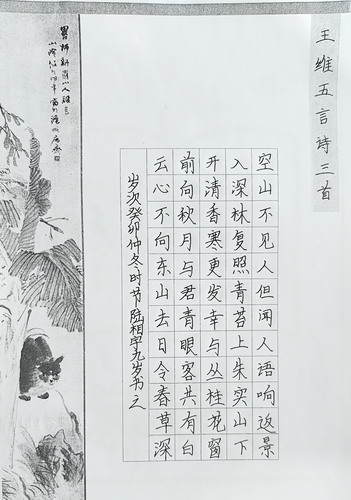 王维五言诗三首
空山不见人但闻人语响返景
入深林复照青苔上朱实山下
开清香寒更发幸与丛桂花窗
前向秋月与君青眼客共有白
云心不向东山去日令春草深
岁次癸卯仲冬时节陆相宇九岁书之